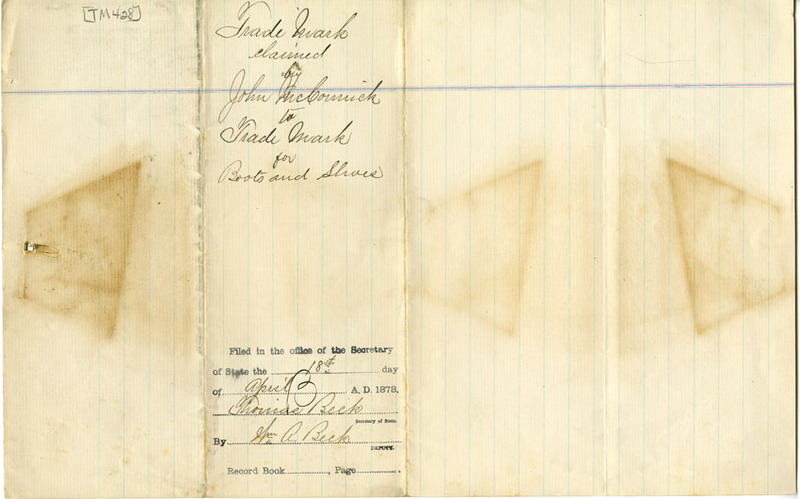 [TM428]
Trade Mark
claimed
by
John McCormick
to
Trade Mark
for
Boots and Shoes
Filed in the office of the Secretary
of State the 18th day
of April A. D. 1878,
Thomas Beck
Secretary of State.
By Wm A. Beck
Deputy.
Record Book , Page .